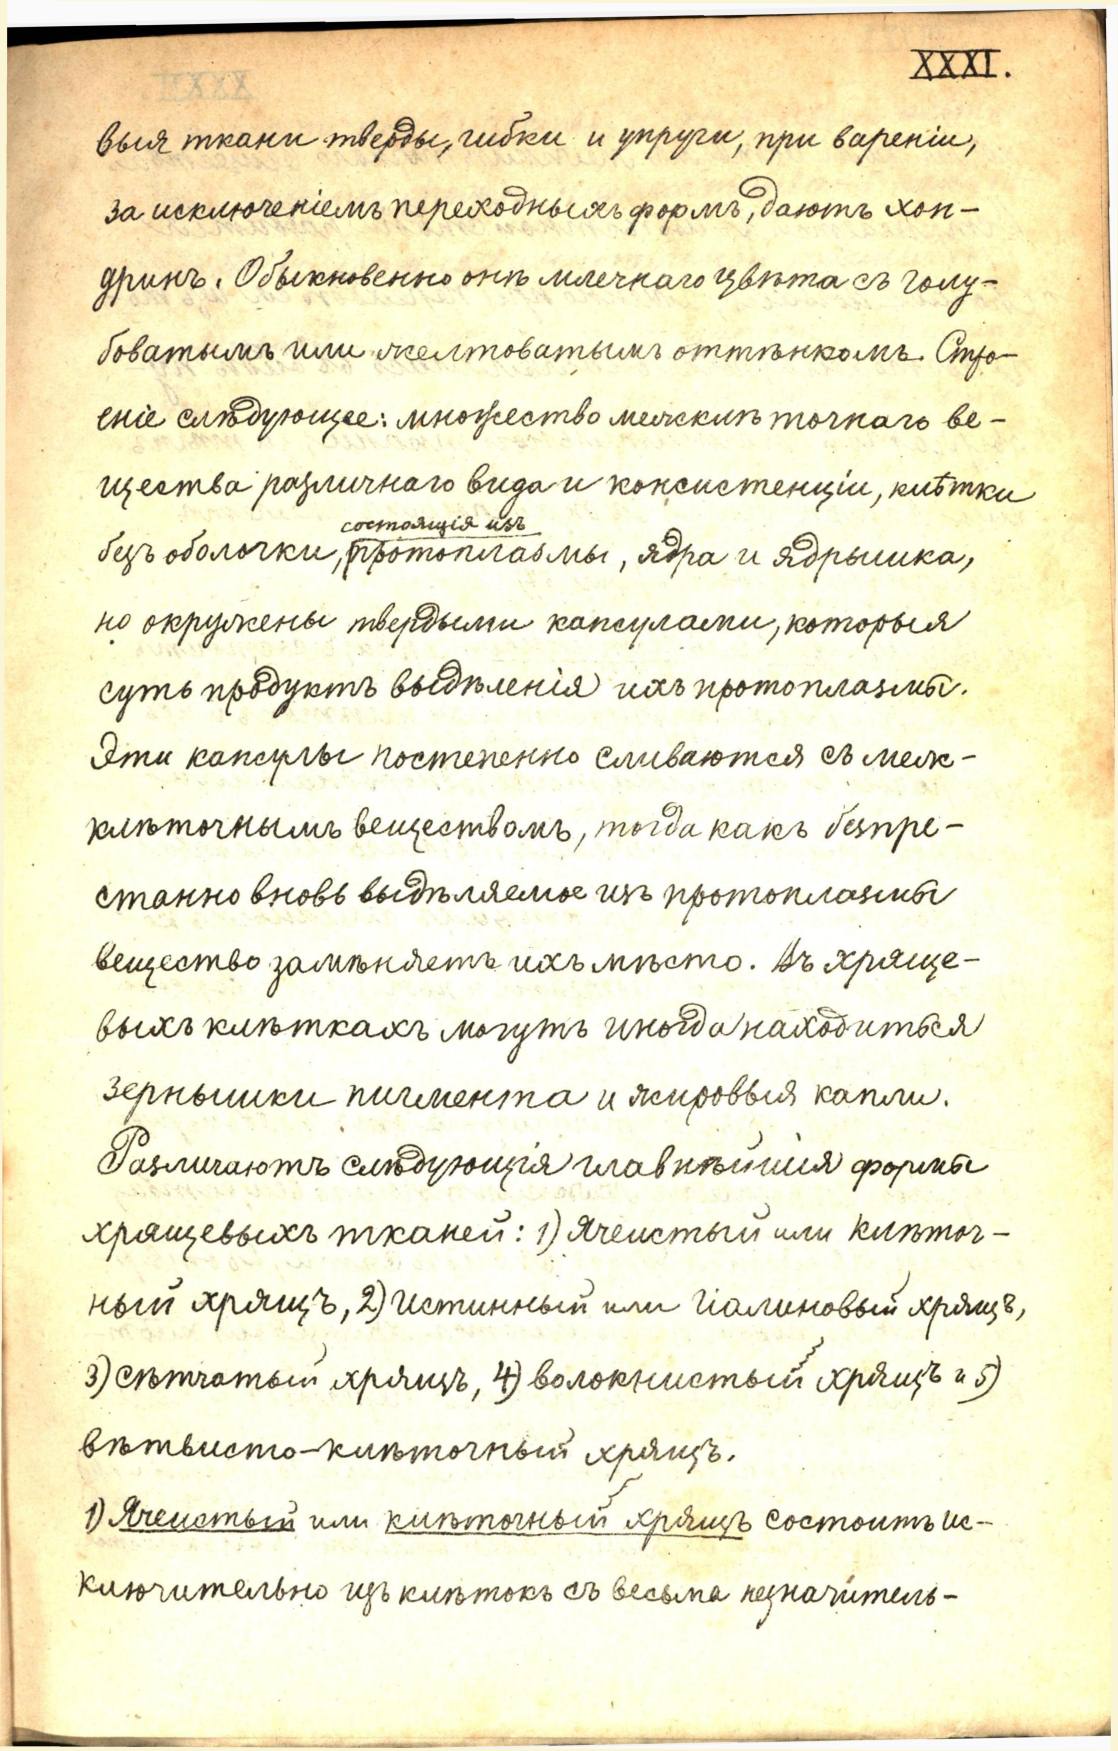 XXXI.
выя ткани тверды, гибки и упруги, при вареніи,
за исключеніемъ переходныхъ формъ, даютъ хон-
дринъ. Обыкновенно онѣ млечнаго цвѣта съ голу-
боватымъ или желтоватымъ оттѣнкомъ. Стро-
еніе слѣдующее: множество межклѣточнаго ве-
щества различнаго вида и консистенціи, клѣтки
состоящія изъ
безъ оболочки, протоплазмы, ядра и ядрышка,
но окружены твердыми капсулами, которыя
суть продуктъ выдѣленія ихъ протоплазмы.
Эти капсулы постепенно сливаются съ меж-
клѣточнымъ веществомъ, тогда какъ безпре-
станно вновь выдѣляемое изъ протоплазмы
вещество замѣняетъ ихъ мѣсто. Въ хряще-
выхъ клѣткахъ могутъ иногда находиться
зернышки пигмента и жировыя капли.
Различаютъ слѣдующія главнѣйшія формы
хрящевыхъ тканей: 1) Ячеистый или клѣточ-
ный хрящъ, 2) истинный или гіалиновый хрящъ,
3) сѣтчатый хрящъ, 4) волокнистый хрящъ и 5)
вѣтвисто-клѣточный хрящъ.
1) Ячеистый или клѣточный хрящъ состоитъ ис-
ключительно изъ клѣтокъ съ весьма незначитель-